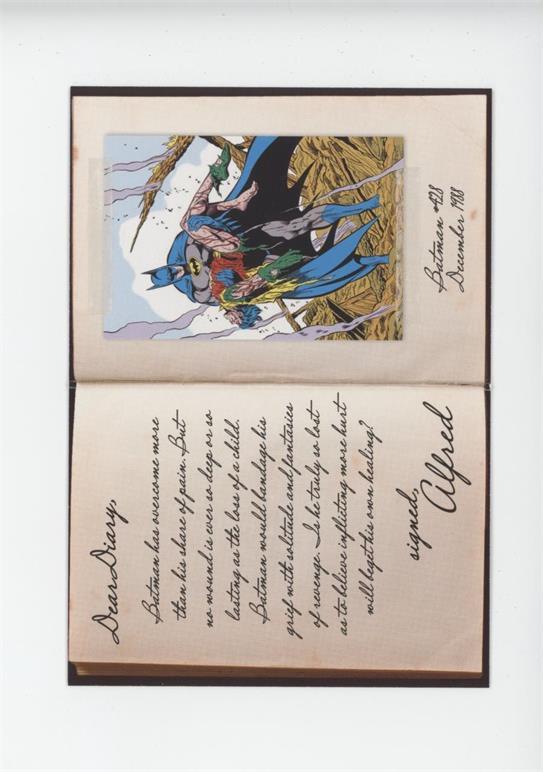 Dear Diary,
Batman has overcome more
than his share of pain. But
no wound is ever so deep or so
lasting as the loss of a child.
Batman would bandage his
grief with solitude and fantasies
of revenge. Is he truly so lost
as to believe inflicting more hurt
will beget his own healing?
signed,
Alfred
Batman #428
December 1988